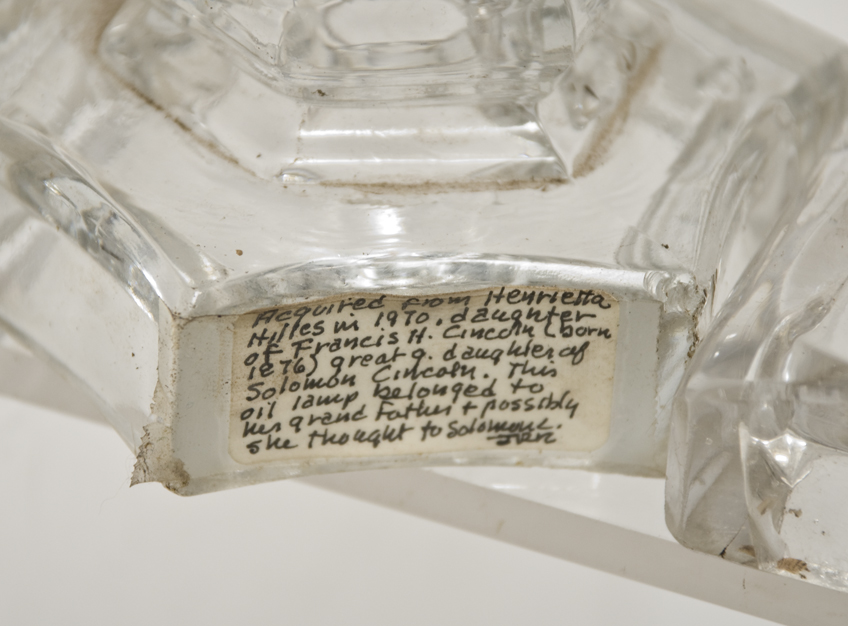 Acquired from Henrietta
Hilles in 1970, daughter
of Francis H. Lincoln (born
1876) great g. daughter of
Solomon Lincoln. This
oil lamp belonged to
her grand father + possibly
she thought to Solomon L.